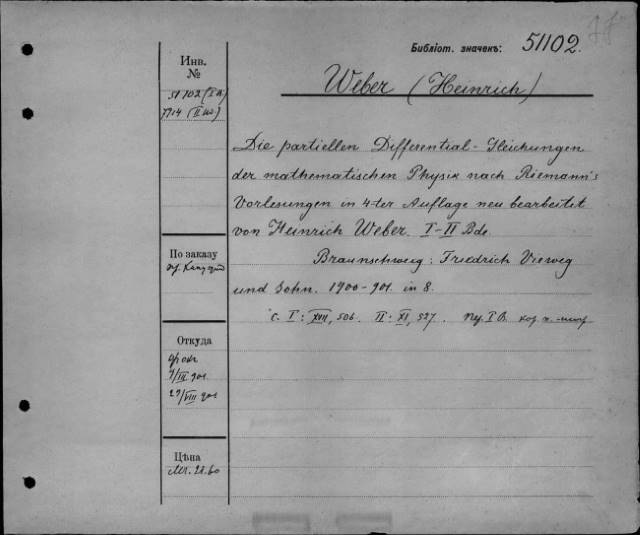 Библіот. значекъ: 51102.
Weber (Heinrich)
Инв.
№
51102 (I Bd)
7714
Die partiellen Differential-Gleichungen
der mathematischen Physik nach Riemann's
Vorlesungen in 4-ter Auflage neu bearbeitet
von Heinrich Weber. I-II Bde.
Braunschweig: Friedrich Vieweg
und Sohn. 1900-901. in 8.
С. I: XVII, 506. II: XI, 527.
По заказу
Откуда
9/III 901.
29/VIII 901
Цѣна